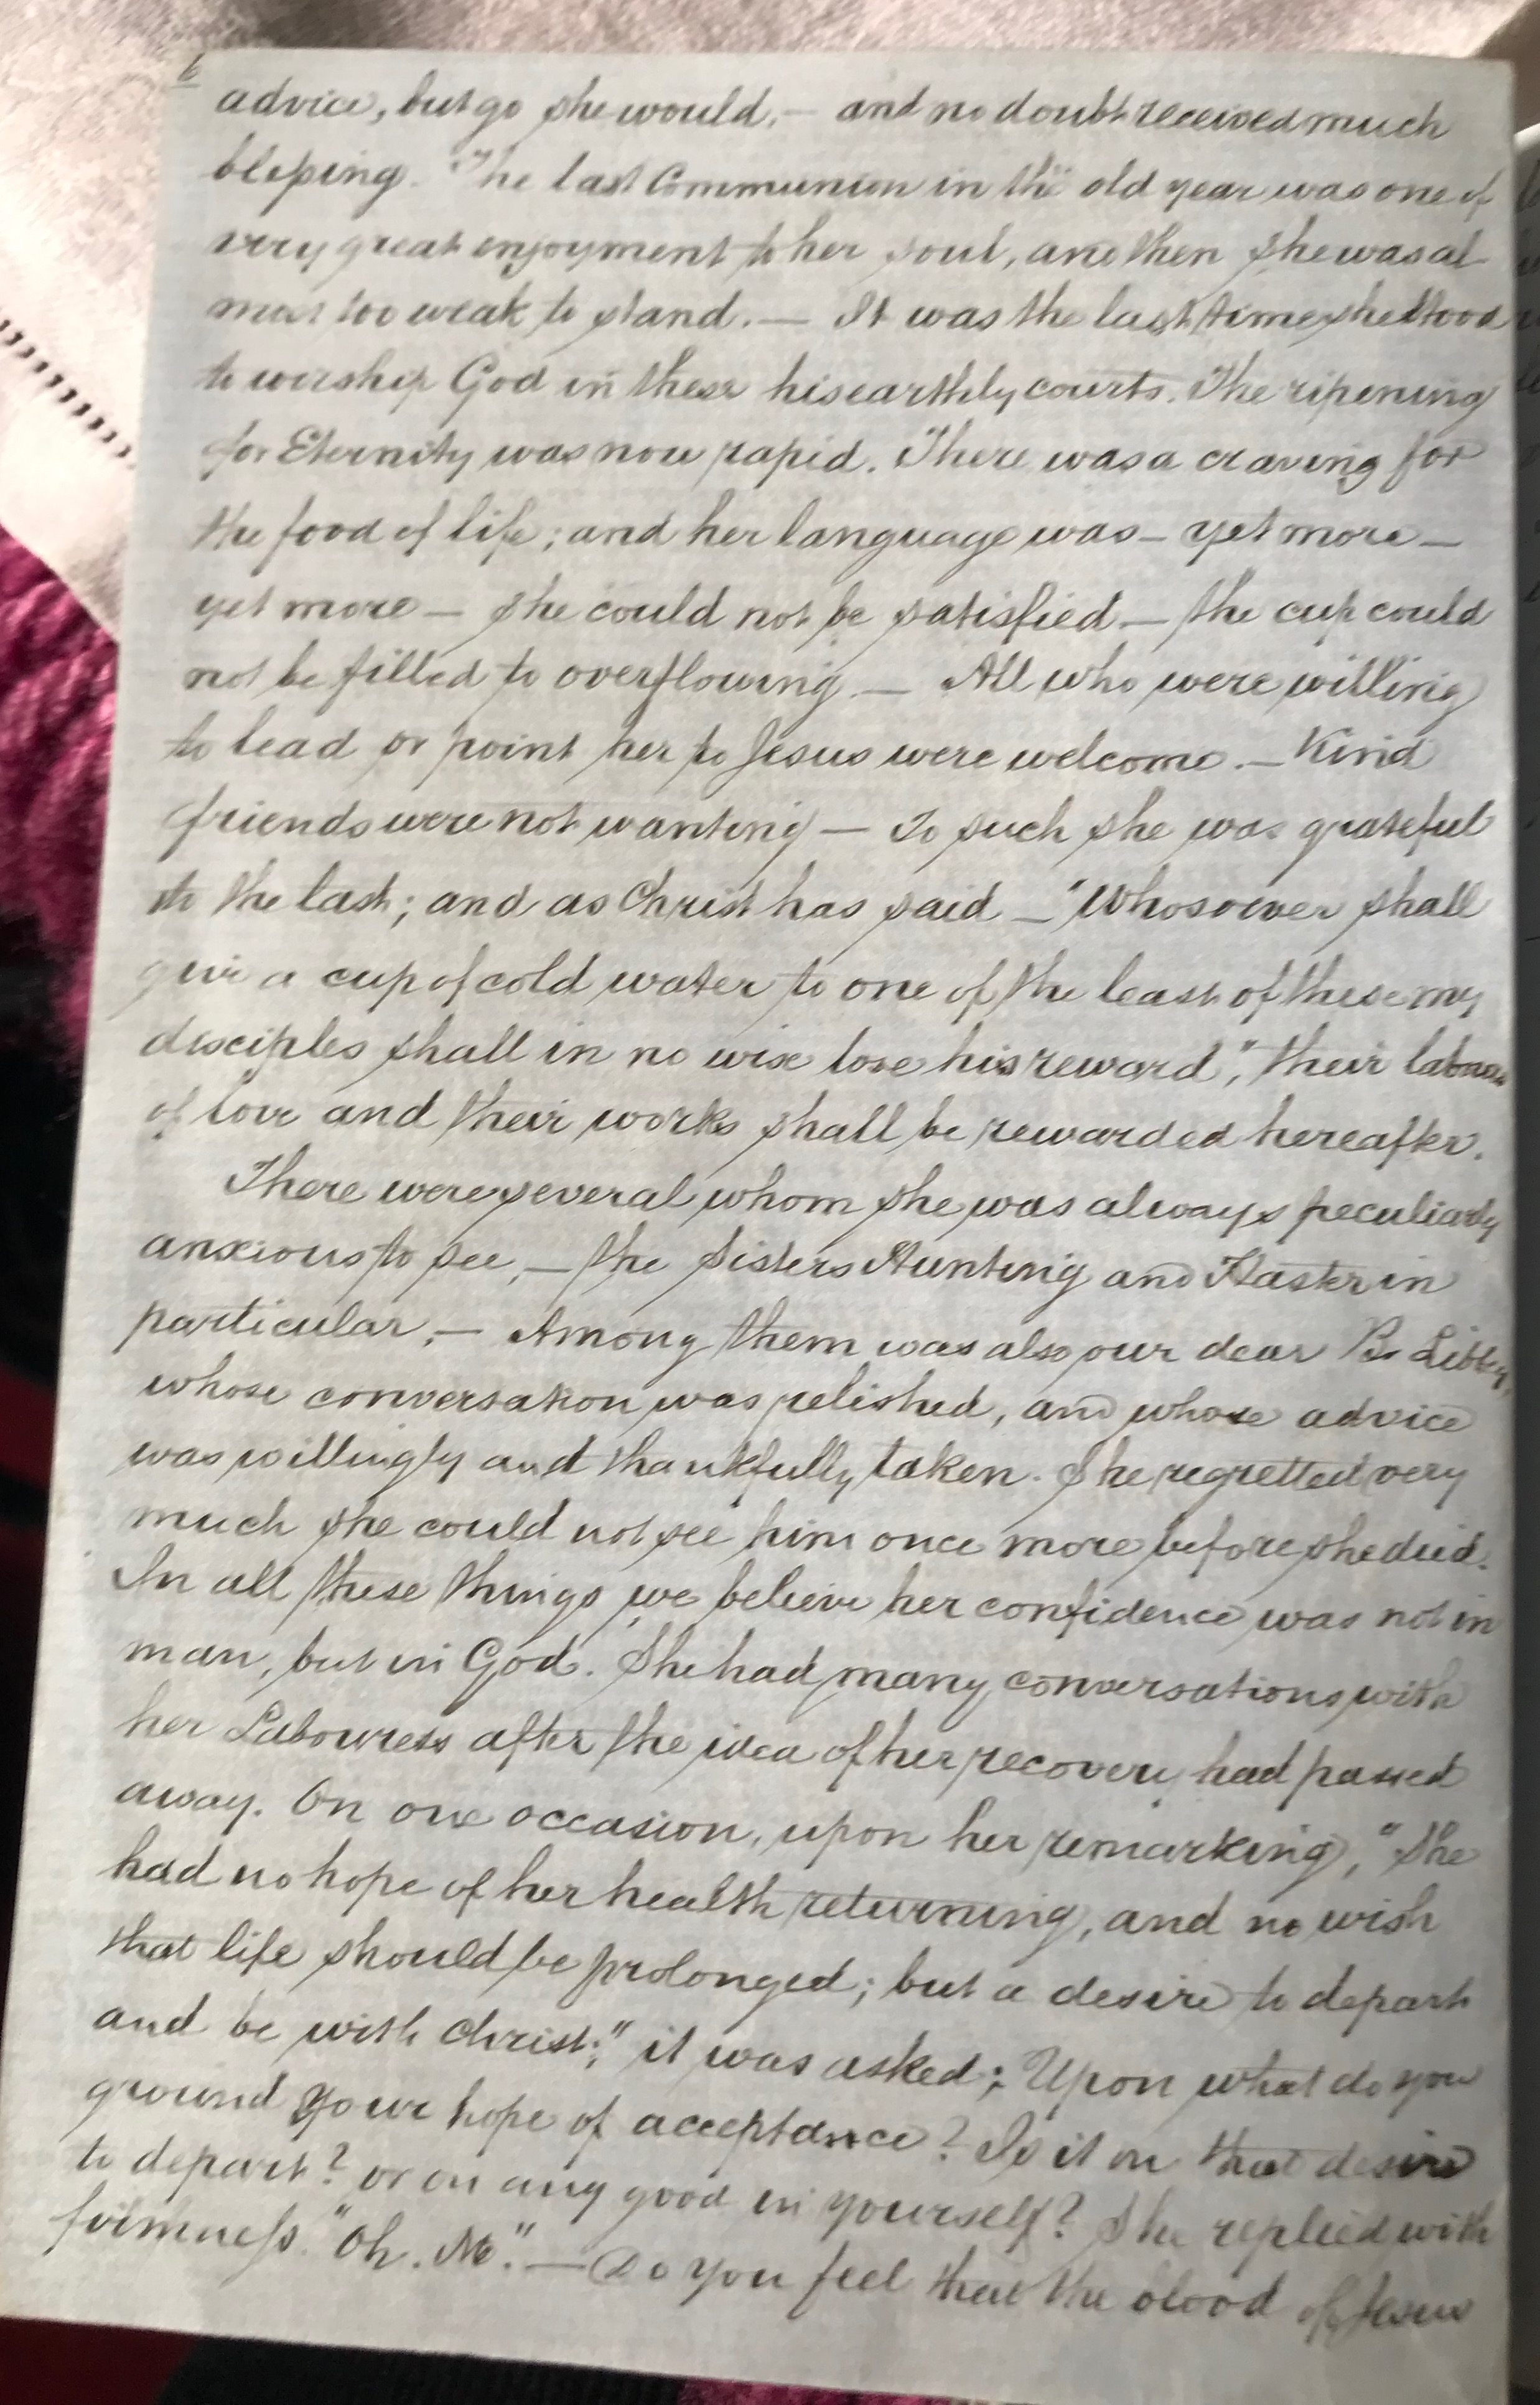 6
advice, but go she would,— and no doubt received much
blessing. The last Communion in the old year was one of
very great enjoyment to her soul, and then she was al
most too weak to stand.— It was the last time she stood
to worship God in these his earthly courts. The ripening
for Eternity was now rapid. There was a craving for
the food of life; and her language was— yet more—
yet more— she could not be satisfied— the cup could
not be filled to overflowing.— All who were willing
to lead or point her to Jesus were welcome.— Kind
friends were not wanting— To such she was grateful
to the last; and as Christ has said— "Whosoever shall
give a cup of cold water to one of the least of these my
disciples shall in no wise lose his reward", their labour
of love and their works shall be rewarded hereafter.
There were several whom she was always peculiarly
anxious to see,— the Sisters Hunting and in
particular,— Among them was also our dear Br Libbey,
whose conversation was relished, and whose advice
was willingly and thankfully taken. She regretted very
much she could not see him once more before she died.
In all these things we believe her confidence was not in
man, but in God. She had many conversations with
her Labouress after the idea of her recovery had passed
away. On one occasion, upon her remarking, "She
had no hope of her health returning, and no wish
that life should be prolonged; but a desire to depart
and be with Christ;" it was asked; Upon what do you
ground your hope of acceptance? Is it on that desire
to depart? or on any good in yourself? She replied with
firmness "Oh. No."— Do you feel that the blood of Jesus